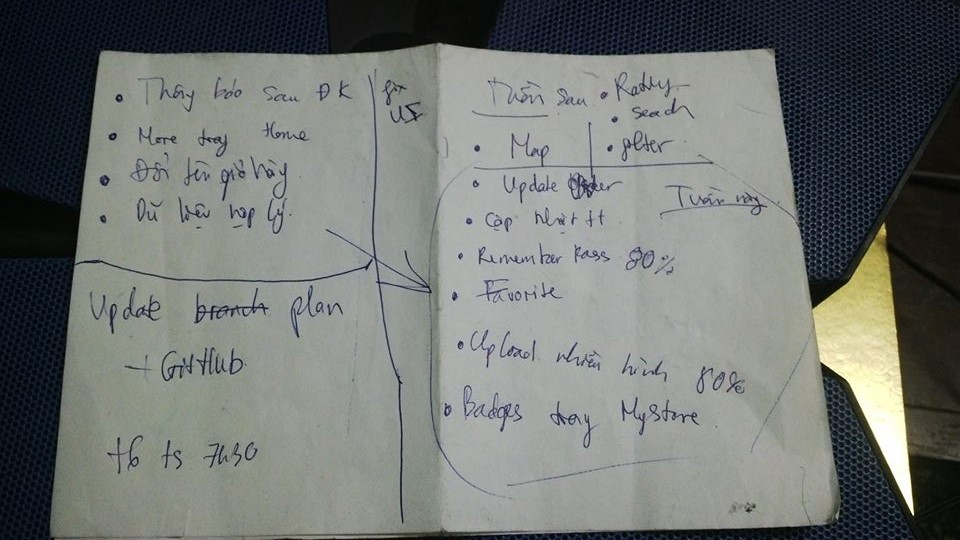 • Thông báo sau ĐK
• More trong Home
• Đổi tên giỏ hàng
• Dữ liệu hợp lý.
fix
UI
Update branch plan
+ GitHub
t6 ts 7h30
Tuần sau
• Map
•
seach
• filter
Tuần này
• Update Order
• Cập nhật tt
• Remember Pass 80%
• Favorite
• Upload nhiều hình 80%
• Badges trong MyStore